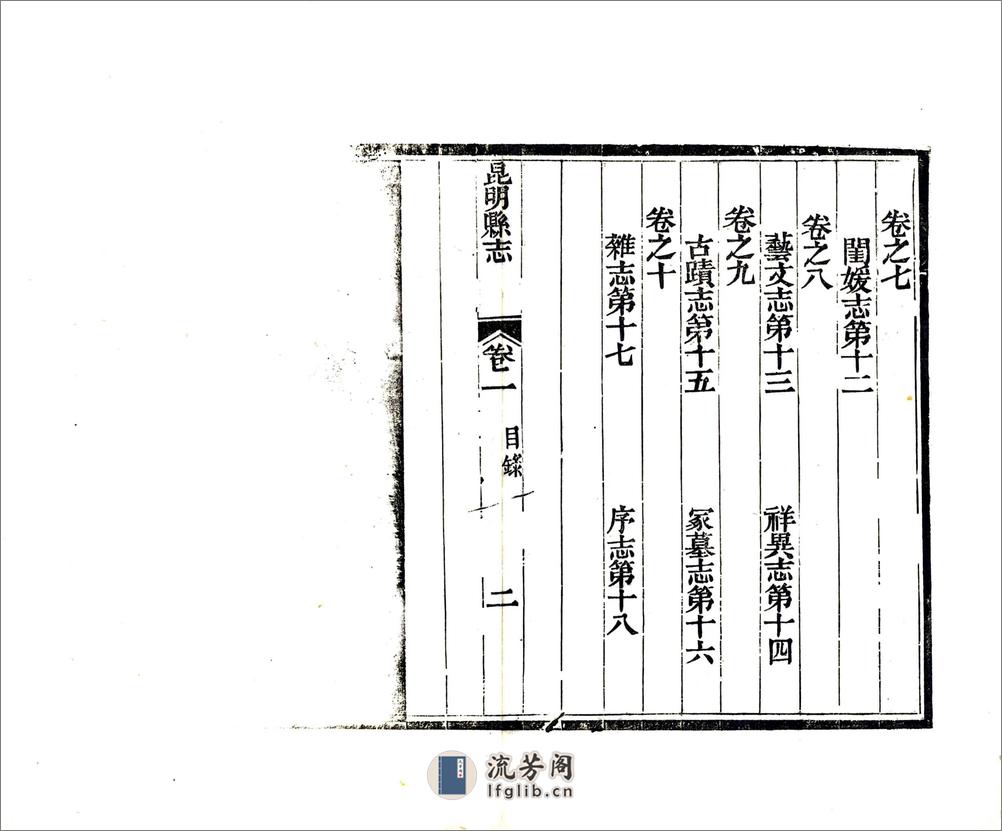 卷之七
閨媛志第十二
卷之八
藝文志第十三 祥異志第十四
卷之九
古蹟志第十五 冢墓志第十六
卷之十
雜志第十七 序志第十八
昆明縣志 卷一 目錄 二
流芳阁
lfglib.cn